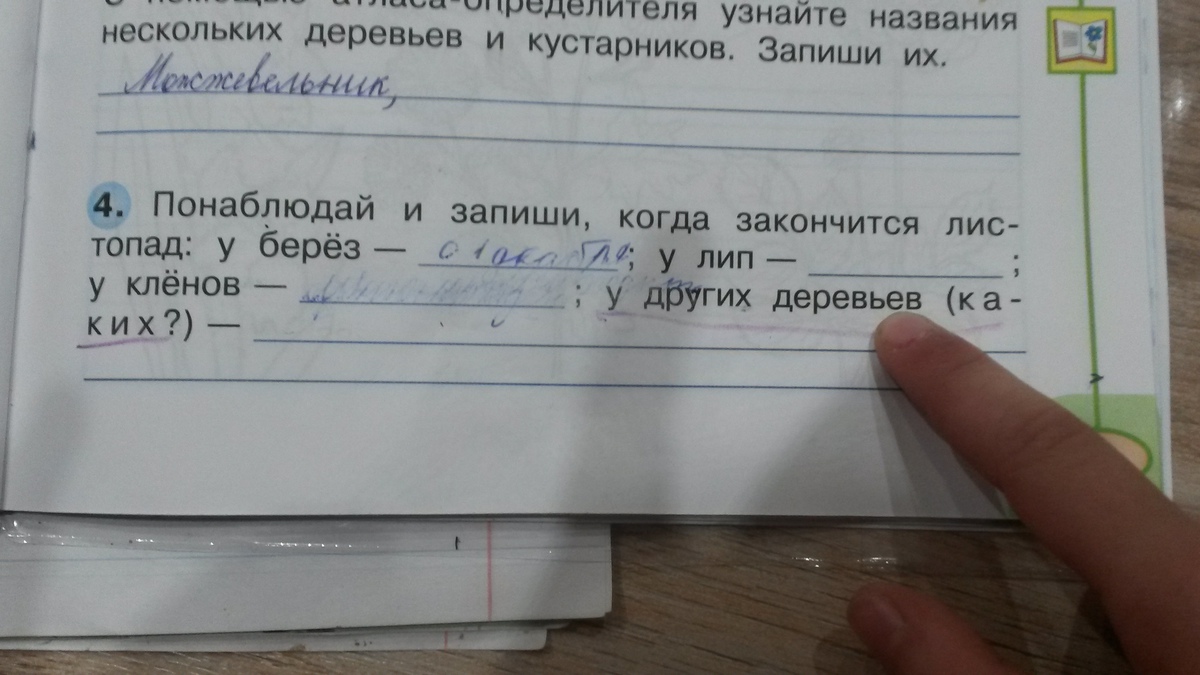 С помощью атласа-определителя узнайте названия
нескольких деревьев и кустарников. Запиши их.
Можжевельник,
4. Понаблюдай и запиши, когда закончится лис-
топад: у берёз — 01 октября; у лип — ;
у клёнов — ; у других деревьев (ка-
ких?) —